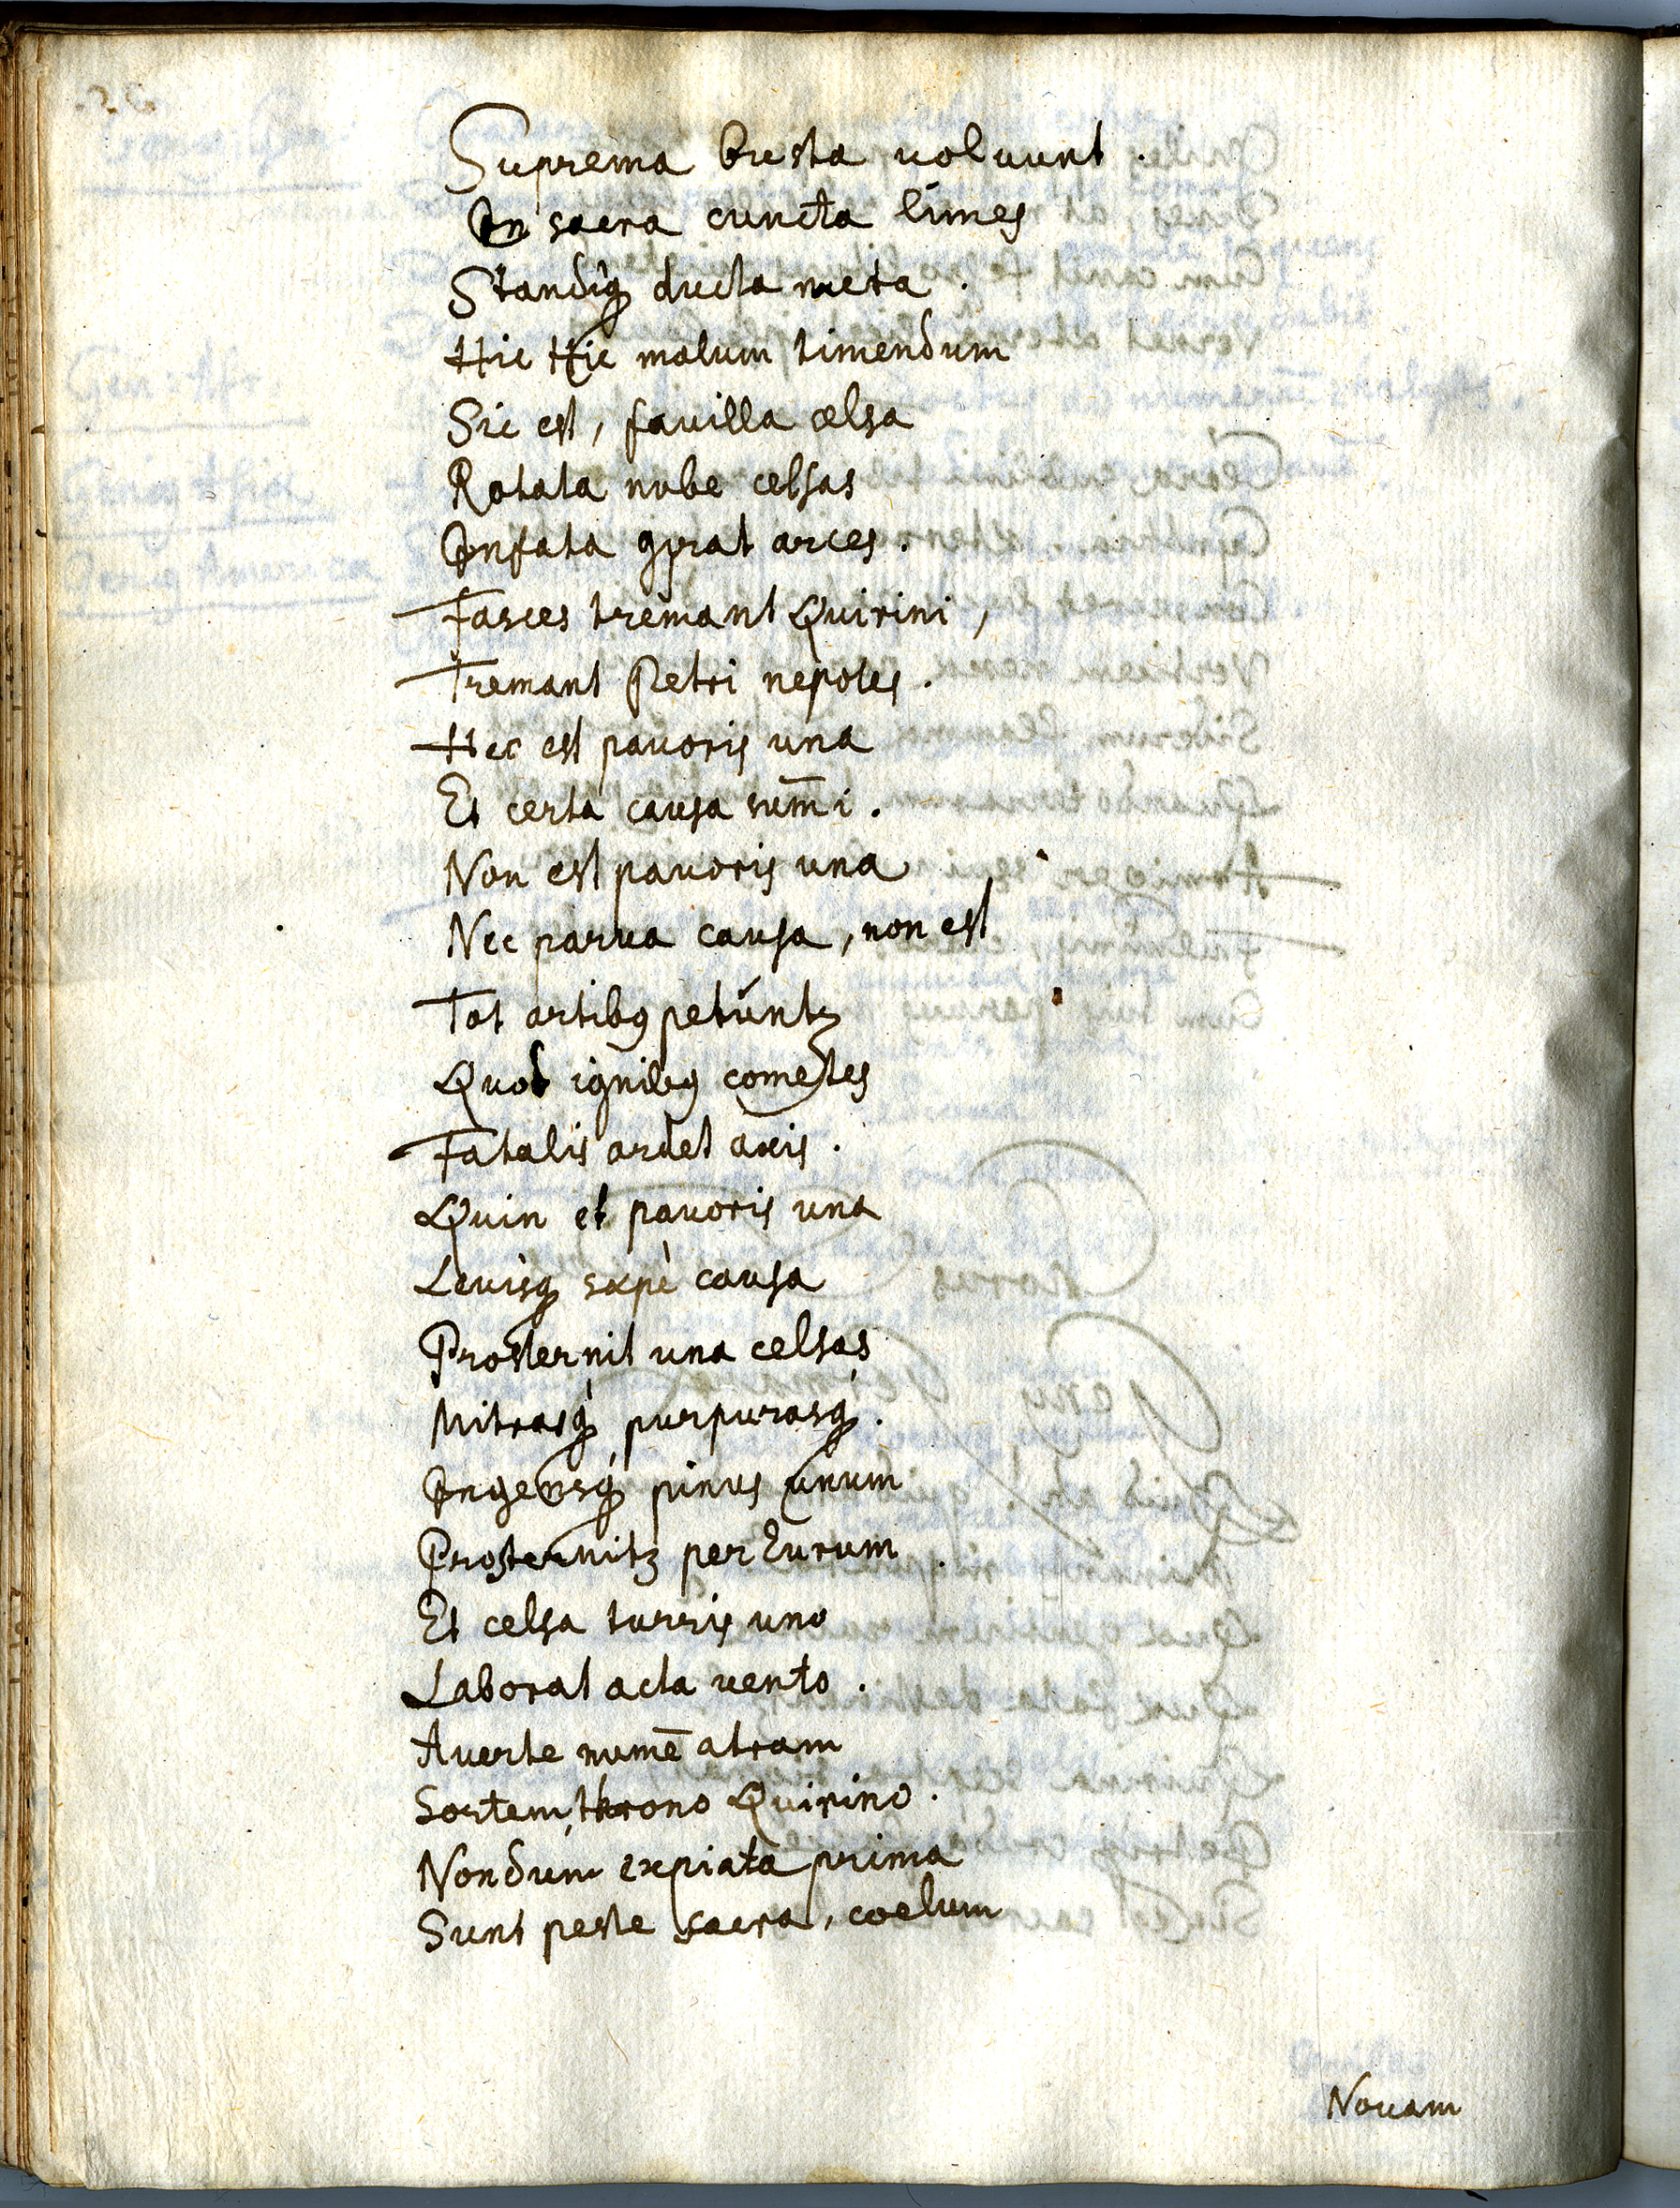 Suprema busta uoluunt.
In sacra cuncta limes
Standiq́ꝫ ducta meta.
Hic Hic malum timendum
Sic est, fauilla celsa
Rotata nube celsas
Infata gyrat arces.
Fasces tremant Quirini,
Tremant Petri nepotes.
Hec est pauoris una
Et certa causa sum̄i.
Non est pauoris una
Nec parua causa, non est
Tot artibꝰ petúntꝫ
Quot ignibꝰ cometes
Fatalis ardet axis.
Quin et pauoris una
Leuisqꝫ sæpè causa
Prosternit una celsas
Mitrasq́ꝫ purpurasq́ꝫ.
Ingensq́ꝫ pinus unum
Prosternitꝫ per Eurum
Et celsa turris uno
Laborat acta vento.
Auerte numē atram
Sortem, throno Quirino.
Nondum expiata prima
Sunt peste sacra, coelum
Nouam